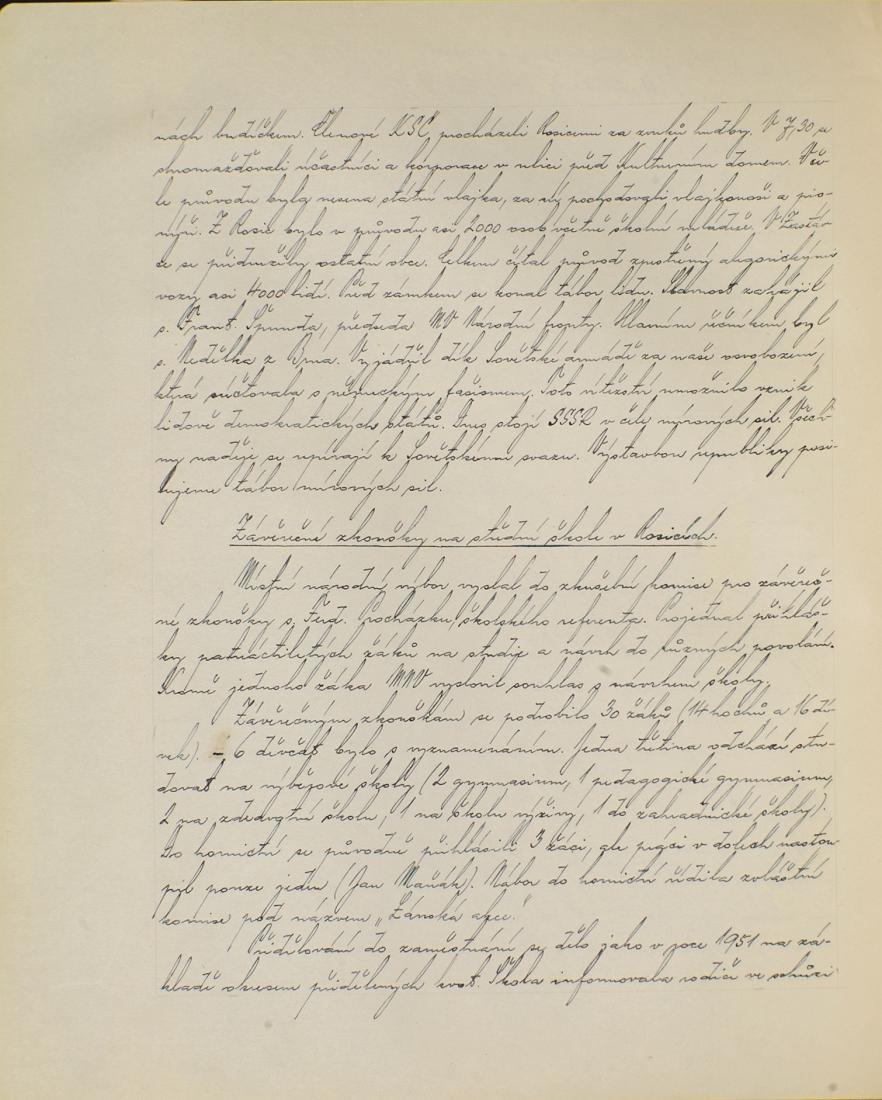 nách budíčkem. Členové KSČ procházeli Rosicemi za zvuků hudby. V 7,30 se
shromažďovali účastníci a korporace v ulici před Kulturním domem. V če-
le průvodu byla nesena státní vlajka, za ní pochodovali vlajkonoši a pio-
nýři. Z Rosic bylo v průvodu asi 2000 osob včetně školní mládeže. V Zastáv-
ce se přidružily ostatní obce. Celkem čítal průvod zpestřený alegorickými
vozy asi 4000 lidí. Před zámkem se konal tábor lidu. Slavnost zahájil
s. Frant. Špunda, předseda MV Národní fronty. Hlavním řečníkem byl
s. Nedělka z Brna. Vyjádřil dík Sovětské armádě za naše osvobození,
která súčtovala s německým fašismem. Toto vítězství umožnilo vznik
lidově demokratických států. Dnes stojí SSSR v čele mírových sil. Všech-
ny naděje se upírají k Sovětskému svazu. Výstavbou republiky posi-
lujeme tábor mírových sil.
Závěrečné zkoušky na střední škole v Rosicích.
Místní národní výbor vyslal do zkušební komise pro závěreč-
né zkoušky s. Ferd. Procházku, školského referenta. Projednal přihláš-
ky patnáctiletých žáků na studie a návrh do různých povolání.
Kromě jednoho žáka MNV vyslovil souhlas s návrhem školy.
Závěrečným zkouškám se podrobilo 30 žáků (14 hochů a 16 dí-
vek). – 6 děvčat bylo s vyznamenáním. Jedna třetina odchází stu-
dovat na výběrové školy (2 gymnasium, 1 pedagogické gymnasium,
2 na zdravotní školu, 1 na školu výživy, 1 do zahradnické školy).
Do hornictví se původně přihlásili 3 žáci, ale práci v dolech nastou-
pil pouze jeden (Jan Maňák). Nábor do hornictví řídila zvláštní
komise pod názvem „Lánská akce."
Přidělování do zaměstnání se dělo jako v roce 1951 na zá-
kladě okresem přidělených kvot. Škola informovala rodiče ve schůzi